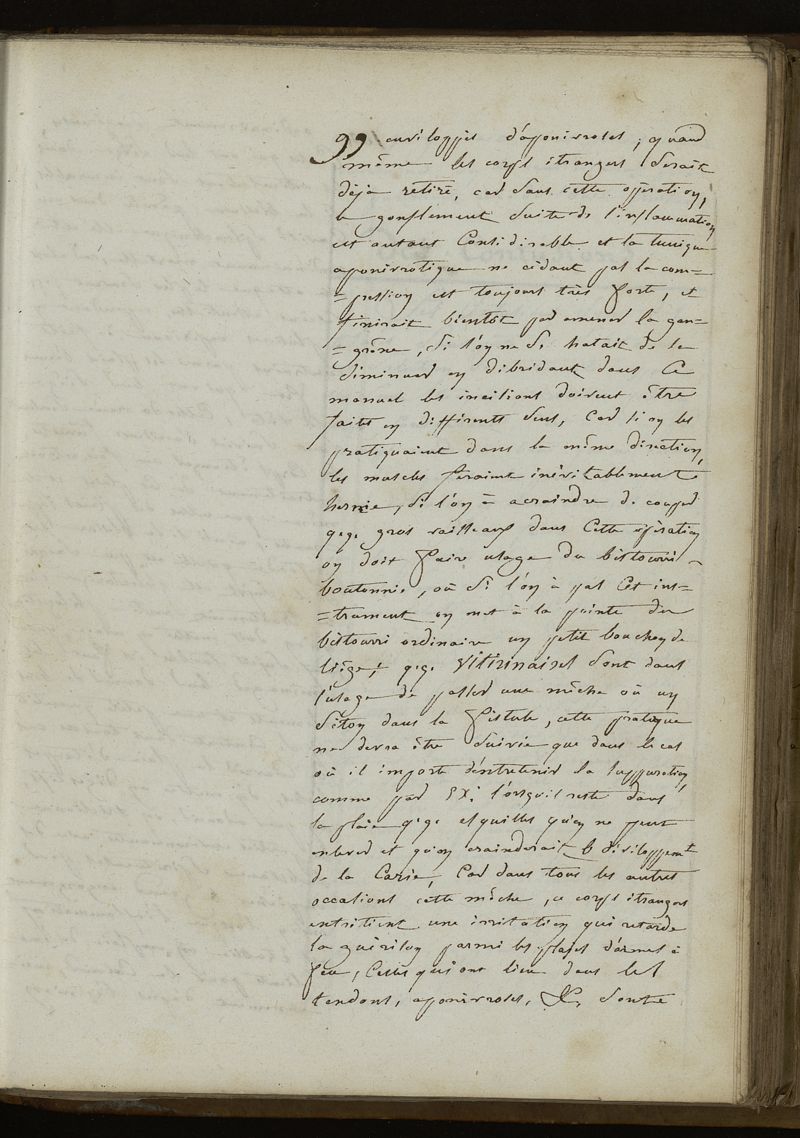 99 envéloppés d'aponivroses, quand
même les corps étrangers serait
déja retiré, car dans cette opération,
le gonflement suite de l'inflammation
est autant Considérable et la tunique
aponivrotique ne cédant pas la com=
=pression est toujours très forte, et
finirait bientôt par amener la gan=
=grène, si l'on ne se hatait de la
diminuer en débridant dans Ce
manuel les incisions doivent être
faites en différents sens, Car si on les
pratiquaient dans la même direction,
les muscles feraient inévitablement
hernie, si l'on à acraindre de couper
q.q. gros vaisseaux dans Cette opération
on doit faire usage du bistourri
boutonné, où si l'on à pas Cet ins=
=trument on met à la pointe du
bistourri ordinaire un petit bouchon de
liège; q.q. Vétérinaires sont dans
l'usage de passer une mèche où un
séton dans la fistule, cette pratique
ne devra être suivie que dans le cas
où il importe d'entretenir la suppuration,
comme par EX: l'orsqu'il reste dans
la plaie q.q. esquilles qu'on ne peut
enlever et qu'on crainderait le dévéloppemt
de la Carie, Car dans tous les autres
occasions cette mèche, ce corps étrangers
entretient une irritation qui retarde
la guérison parmi les plaies d'armes à
feu, Celles qui ont lieu dans les
tendons, aponivroses, &c, sont